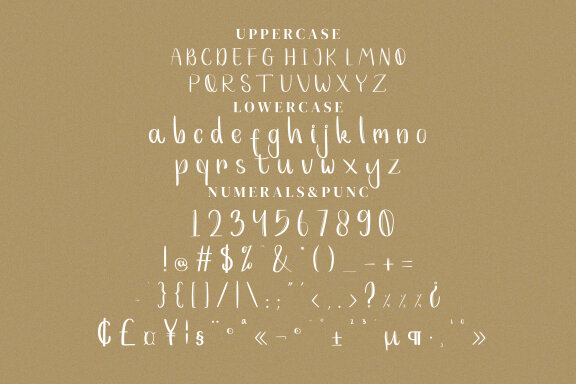 UPPERCASE
ABCDEFG HIJK LMNO
PQRSTUVWXYZ
LOWERCASE
abcdefghijklmno
pqrstuvwxyz
NUMERALS&PUNC
1234567890
!@#$%^&*()_-+=
~`}{[]/|\:;"'<,.>?
¢£¤¥¦§¨©ª«¬®¯°±²³´µ¶·¸¹º»